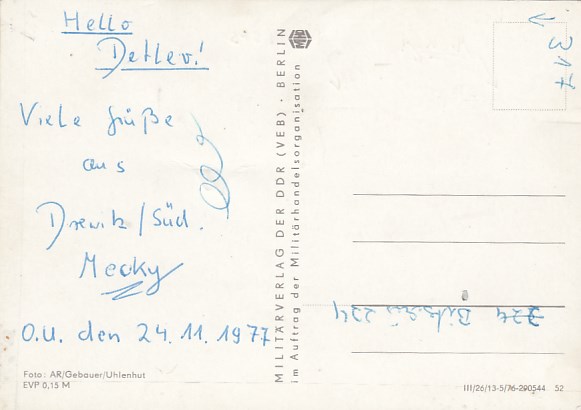 Hello
Detlev!
Viele Grüße
aus
Drewitz/Süd.
Mecky
O.U. den 24.11.1977
Foto: AR/Gebauer/Uhlenhut
EVP 0,15 M
MILITÄRVERLAG DER DDR (VEB) · BERLIN
im Auftrag der Militärhandelsorganisation
317
224
III/26/13-5/76-290544 52